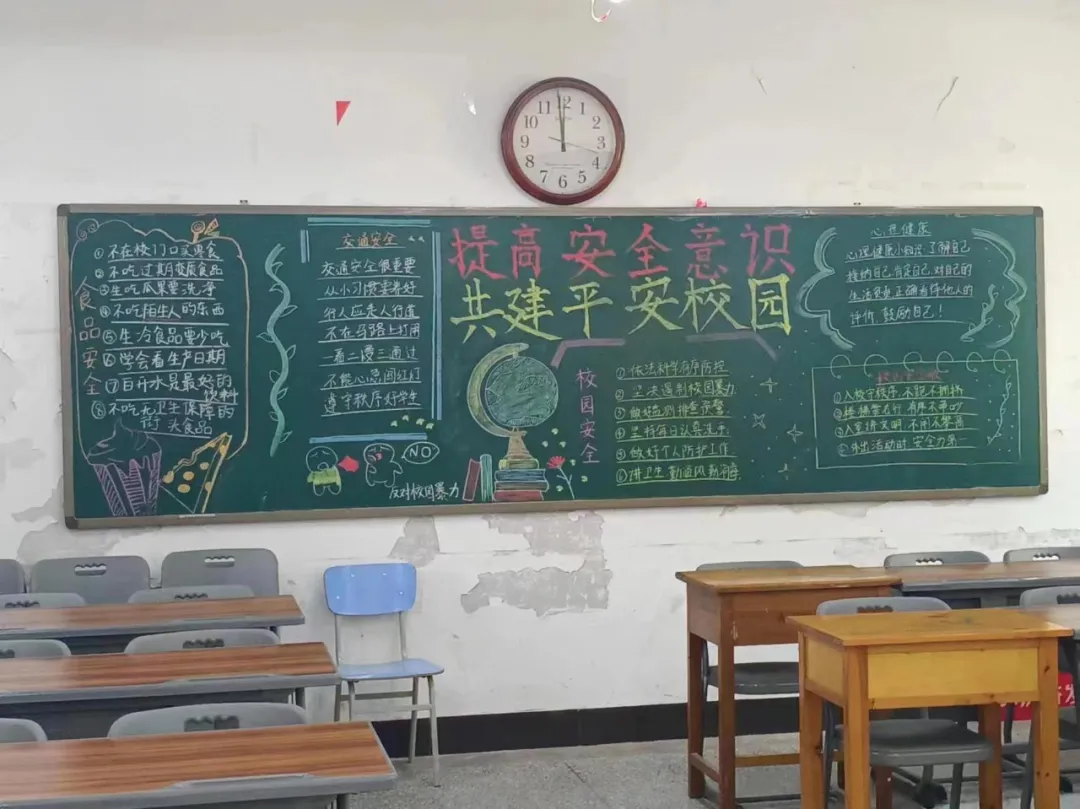 12
1
2
3
4
5
6
7
8
9
10
11
食品安全
①不在校门口买零食
②不吃过期变质食品
③生吃瓜果要洗净
④不吃陌生人的东西
⑤生冷食品要少吃
⑥学会看生产日期
⑦白开水是最好的
饮料
⑧不吃无卫生保障的
街头食品
交通安全
交通安全很重要
从小习惯要养好
行人应走人行道
不在马路上打闹
一看二慢三通过
不能心急闯红灯
遵守秩序好学生
NO
反对校园暴力
提高安全意识
共建平安校园
校园安全
①依法科学有序防控
②坚决遏制校园暴力
③做好鉴别排查预警
④坚持每日认真洗手
⑤做好个人防护工作
⑥讲卫生勤通风
心理健康
心理健康小知识:了解自己
接纳自己 肯定自己 对自己的
生活负责 正确看待他人的
评价 鼓励自己!
①入校守秩序 不跑不拥挤
④外出活动时 安全力第一